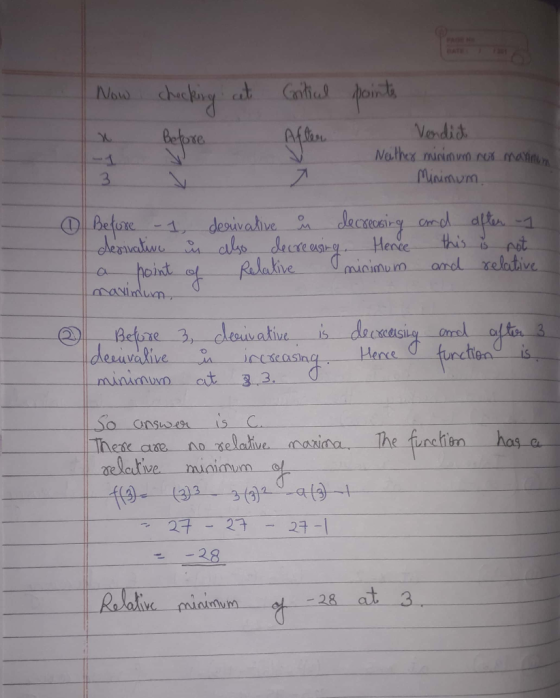 Now checking at Critical points
x Before After Verdict
-1 ↘ ↘ Neither minimum nor maximum
3 ↘ ↗ Minimum.
① Before -1, derivative is decreasing and after -1
derivative is also decreasing. Hence this is not
a point of Relative minimum and relative
maximum.
② Before 3, derivative is decreasing and after 3
derivative is increasing. Hence function is
minimum at 3.
So answer is C.
There are no relative maxima. The function has a
relative minimum of
f(3) = (3)³ - 3(3)² - 9(3) - 1
= 27 - 27 - 27 - 1
= -28
Relative minimum of -28 at 3.